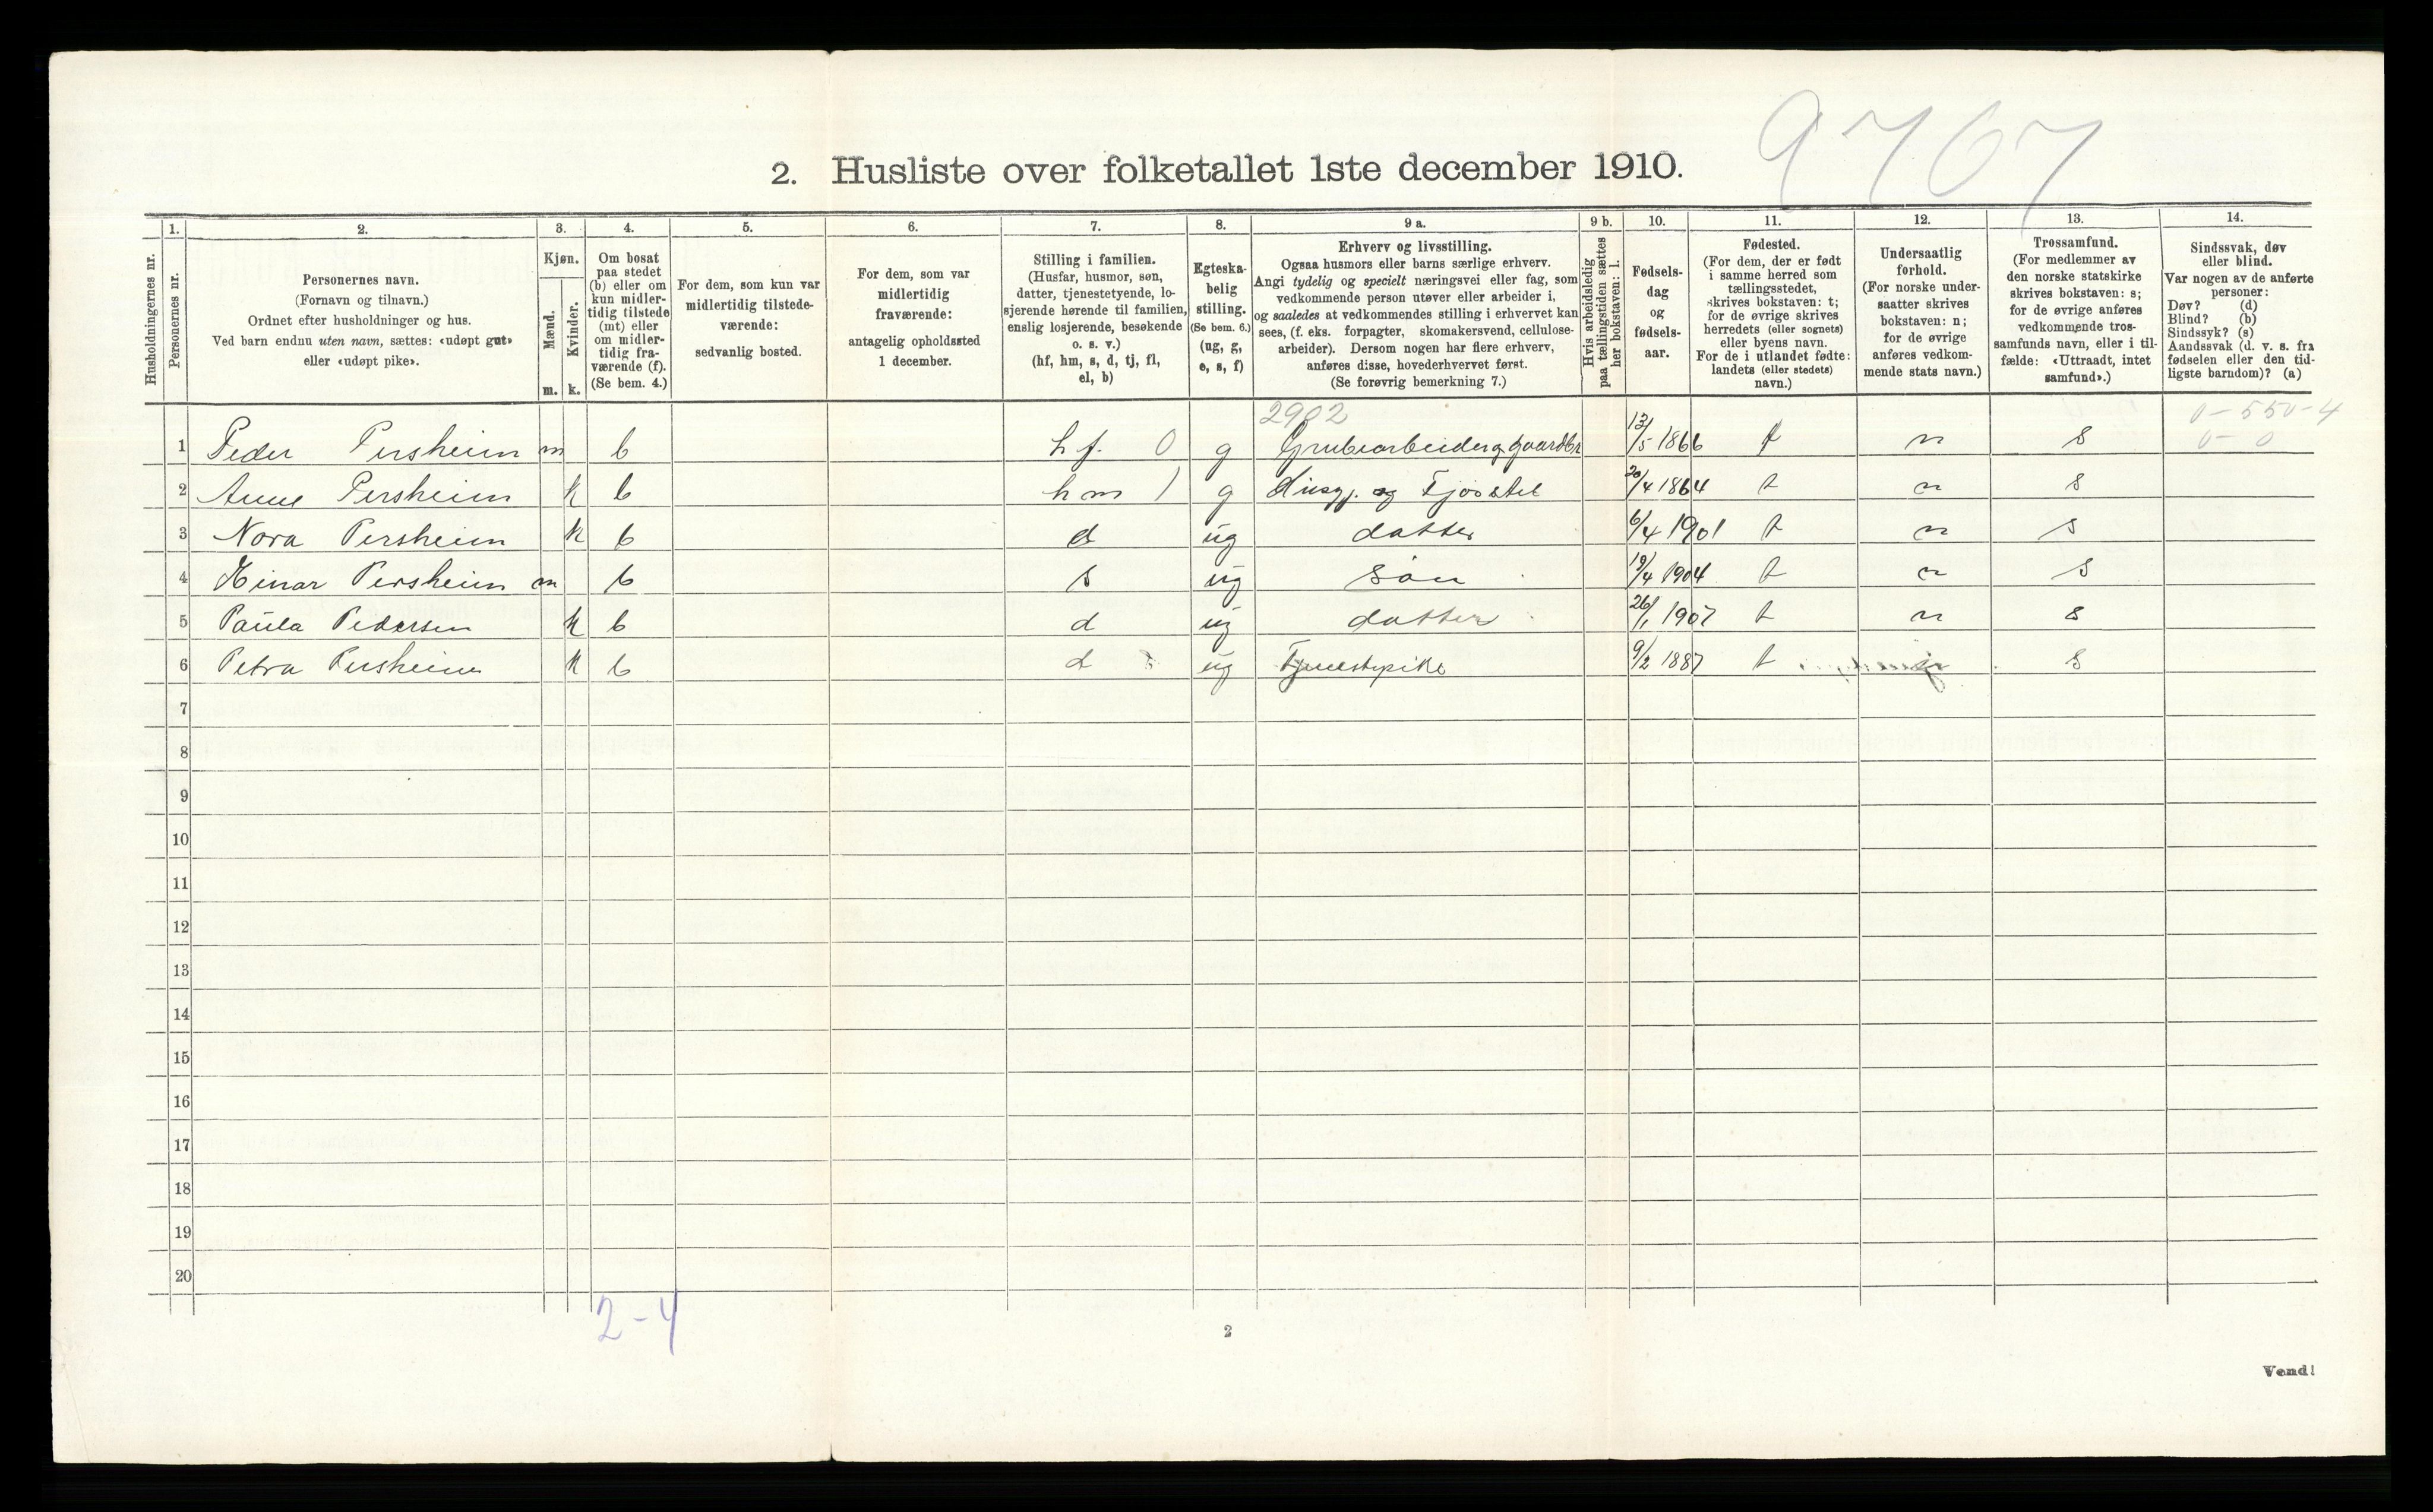 9767
2. Husliste over folketallet 1ste december 1910.
1. 2. 3. 4. 5. 6. 7. 8. 9 a. 9 b. 10. 11. 12. 13. 14.
Husholdningernes nr.
Personernes nr.
Personernes navn.
(Fornavn og tilnavn.)
Ordnet efter husholdninger og hus.
Ved barn endnu uten navn, sættes: «udøpt gut»
eller «udøpt pike».
Kjøn.
Mænd.
m.
Kvinder.
k.
Om bosat
paa stedet
(b) eller om
kun midler-
tidig tilstede
(mt) eller
om midler-
tidig fra-
værende (f).
(Se bem. 4.)
For dem, som kun var
midlertidig tilstede-
værende:
sedvanlig bosted.
For dem, som var
midlertidig
fraværende:
antagelig opholdssted
1 december.
Stilling i familien.
(Husfar, husmor, søn,
datter, tjenestetyende, lo-
sjerende hørende til familien,
enslig losjerende, besøkende
o. s. v.)
(hf, hm, s, d, tj, fl,
el, b)
Egteska-
belig
stilling.
(Se bem. 6.)
(ug, g,
e, s, f)
Erhverv og livsstilling.
Ogsaa husmors eller barns særlige erhverv.
Angi tydelig og specielt næringsvei eller fag, som
vedkommende person utøver eller arbeider i,
og saaledes at vedkommendes stilling i erhvervet kan
sees, (f. eks. forpagter, skomakersvend, cellulose-
arbeider). Dersom nogen har flere erhverv,
anføres disse, hovederhvervet først.
(Se forøvrig bemerkning 7.)
Hvis arbeidsledig
paa tællingstiden sættes
her bokstaven: l.
Fødsels-
dag
og
fødsels-
aar.
Fødested.
(For dem, der er født
i samme herred som
tællingsstedet,
skrives bokstaven: t;
for de øvrige skrives
herredets (eller sognets)
eller byens navn.
For de i utlandet fødte:
landets (eller stedets)
navn.)
Undersaatlig
forhold.
(For norske under-
saatter skrives
bokstaven: n;
for de øvrige
anføres vedkom-
mende stats navn.)
Trossamfund.
(For medlemmer av
den norske statskirke
skrives bokstaven: s;
for de øvrige anføres
vedkommende tros-
samfunds navn, eller i til-
fælde: «Uttraadt, intet
samfund».)
Sindssvak, døv
eller blind.
Var nogen av de anførte
personer:
Døv? (d)
Blind? (b)
Sindssyk? (s)
Aandssvak (d. v. s. fra
fødselen eller den tid-
ligste barndom)? (a)
2902 0-550-4
1 Peder Persheim m b hf. 0 g Grubearbeider og gaardbr 13/5 1866 t n s 0-0
2 Anne Persheim k b hm 1 g Husgj. og Fjøsstel 20/4 1864 t n s
3 Nora Persheim k b d ug datter 6/4 1901 t n s
4 Einar Persheim m b s ug Søn 19/4 1904 t n s
5 Paula Pedersen k b d ug datter 26/1 1907 t n s
6 Petra Persheim k b d ug Tjenestepike 9/2 1887 t s
7
8
9
10
11
12
13
14
15
16
17
18
19
20
2-4
2
Vend!